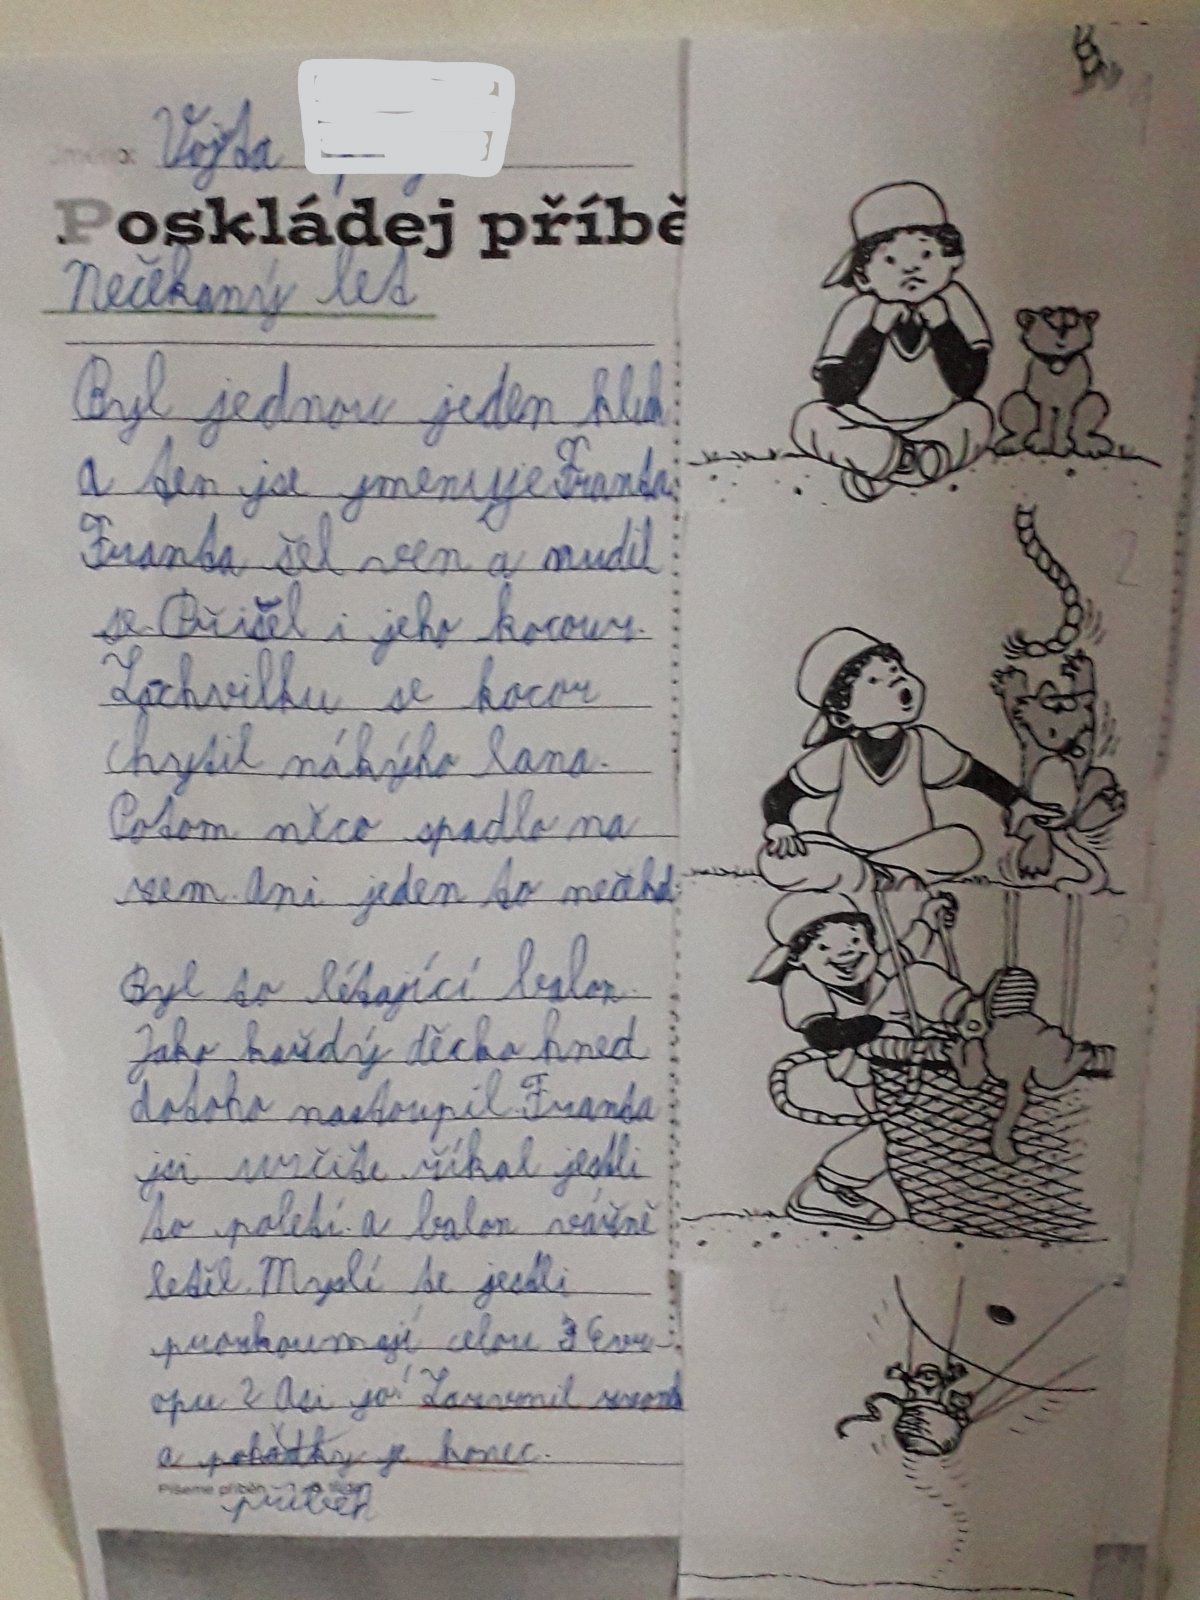 Jméno: Vojta
Poskládej příbě
Nečekaný let
Byl jednou jeden kluk
a ten se jmenuje Franta.
Franta šel ven a nudil
se. Přišel i jeho kocour.
Zachvilku se kocor
chytil nákýho lana.
Potom něco spadlo na
zem. Ani jeden to nečekal.
Byl to létající balon.
Jako každý děcko hned
dotoho nastoupil. Franta
si určitě říkal jestli
to poletí. a balon vážně
letěl. Myslí se jestli
prozkoumají celou Evr-
opu? Asi jo! Zazvonil zvonek
a pohádky je konec.
Píšeme příběh
příběh
2
3